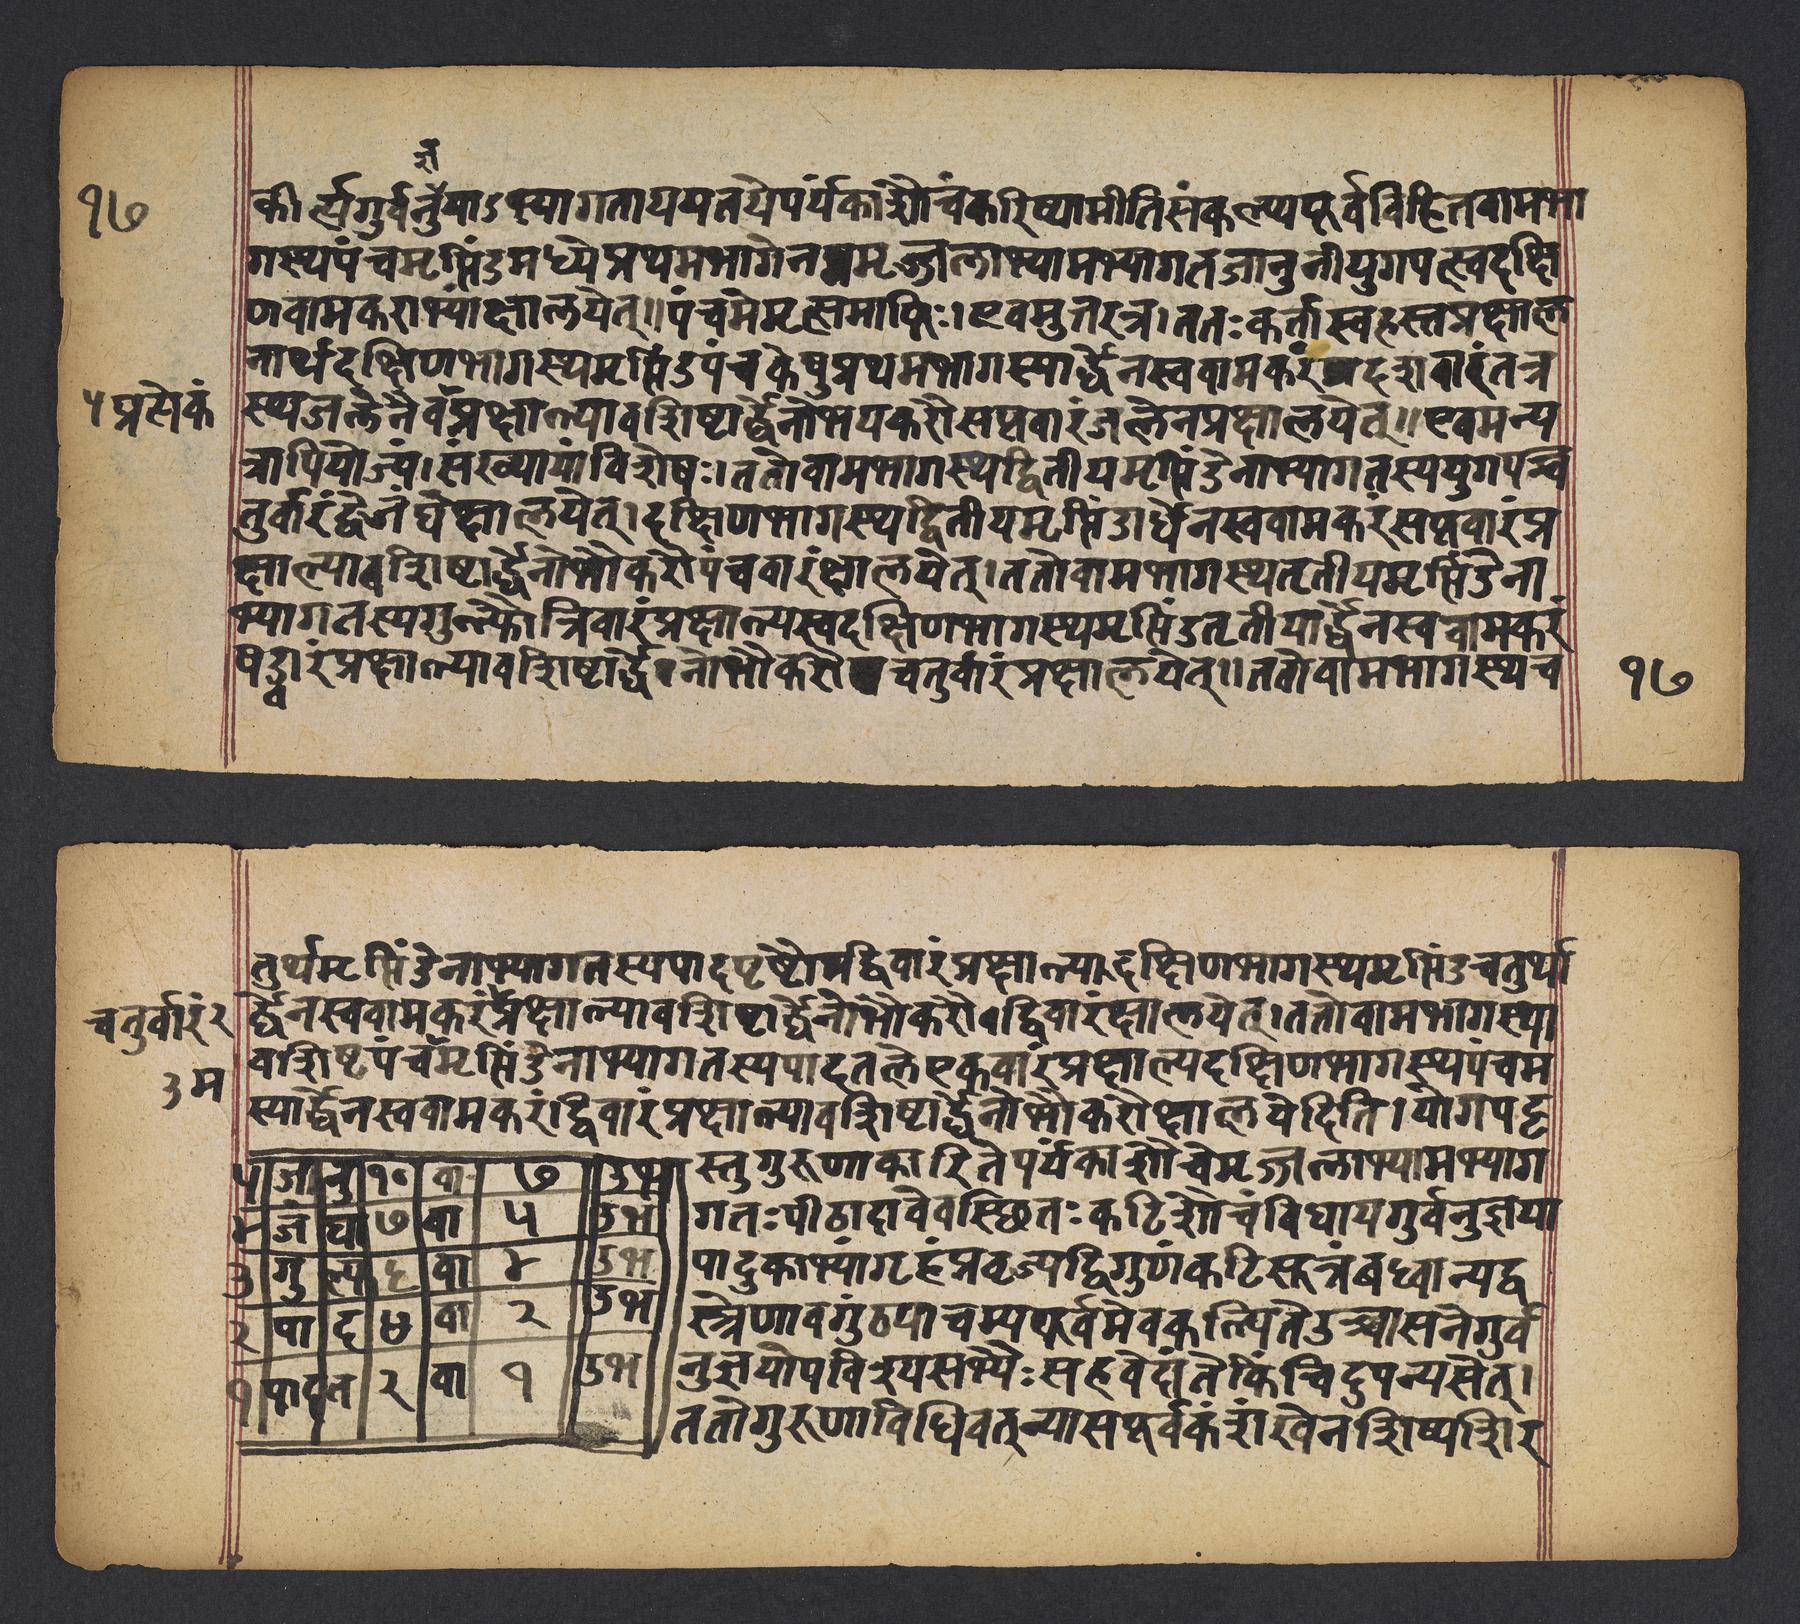 ज्ञां
१७
कीर्त्यगुर्वनुयाऽभ्यागताययतयेपर्यंकाशौचंकरिष्यामीतिसंकल्प्यपूर्वविहितवामभा
गस्थपंचमृत्पिंडमध्येप्रथमभागेन मृज्जलाभ्यामभ्यागतजानुनीयुगपत्स्वदक्षि
णवामकराभ्यांक्षालयेत्॥पंचमेमृत्समाप्तिः।एवमुत्तरत्र।ततःकर्तास्वहस्तप्रक्षाल
नार्थंदक्षिणभागस्थमृत्पिंडपंचकेषुप्रथमभागस्यार्द्धेनस्ववामकरं दशवारंतत्र
५प्रत्येकं
स्थजलेनैवप्रक्षाल्यावशिष्टार्द्धेनोभयकरौसप्तवारंजलेनप्रक्षालयेत्॥एवमन्य
त्रापियोज्यं।संख्यायांविशेषः।ततोवामभागस्थद्वितीयमृत्पिंडेनाभ्यागतस्ययुगपच्च
तुर्वारंद्वेजंघेक्षालयेत्।दक्षिणभागस्थद्वितीयमृत्पिंडार्धेनस्ववामकरंसप्तवारंप्र
क्षाल्यावशिष्टार्द्धेनोभौकरौपंचवारंक्षालयेत्।ततोवामभागस्थतृतीयमृत्पिंडेना
भ्यागतस्यगुल्फौत्रिवारंप्रक्षाल्यस्वदक्षिणभागस्थमृत्पिंडतृतीयार्द्धेनस्ववामकरं
षड्वारंप्रक्षाल्यावशिष्टार्द्धेनोभौकरौ चतुर्वारंप्रक्षालयेत्॥ततोवामभागस्थच
१७
तुर्थमृत्पिंडेनाभ्यागतस्यपादपृष्ठौद्विवारंप्रक्षाल्यदक्षिणभागस्थमृत्पिंडचतुर्था
चतुर्वारं२
र्द्धेनस्ववामकरंप्रक्षाल्यावशिष्टार्द्धेनोभौकरौद्विवारंक्षालयेत्।ततोवामभागस्था
वशिष्टपंचमृत्पिंडेनाभ्यागतस्यपादतलेएकवारंप्रक्षाल्यदक्षिणभागस्थपंचम
३म
स्यार्द्धेनस्ववामकरंद्विवारंप्रक्षाल्यावशिष्टार्द्धेनोभौकरौक्षालयेदिति।योगपट्ट
५ जा नु १० वा ७ उभ
स्तुगुरुणाकारितेपर्यंकाशौचेमृज्जलाभ्यामभ्याग
४ जं घा ७ वा ५ उभ
गतःपीठादावेवस्थितःकटिशौचंविधायगुर्वनुज्ञया
३ गु ल्फ ६ वा ४ उभ
पादुकाभ्यांगृहंप्रवृज्यद्विगुणंकटिसूत्रंबध्वान्यद्व
२ पा द ४ वा २ उभ
स्त्रेणावगुंठयाचम्यपूर्वमेवकल्पितेउच्चासनेगुर्व
१ पाद त २ वा १ उभ
नुज्ञयोपविश्यसभ्यैःसहवेदांतेकिंचिदुपन्यसेत्।
ततोगुरुणाविधिवत्न्यासपूर्वकंशंखेनशिष्यशिर